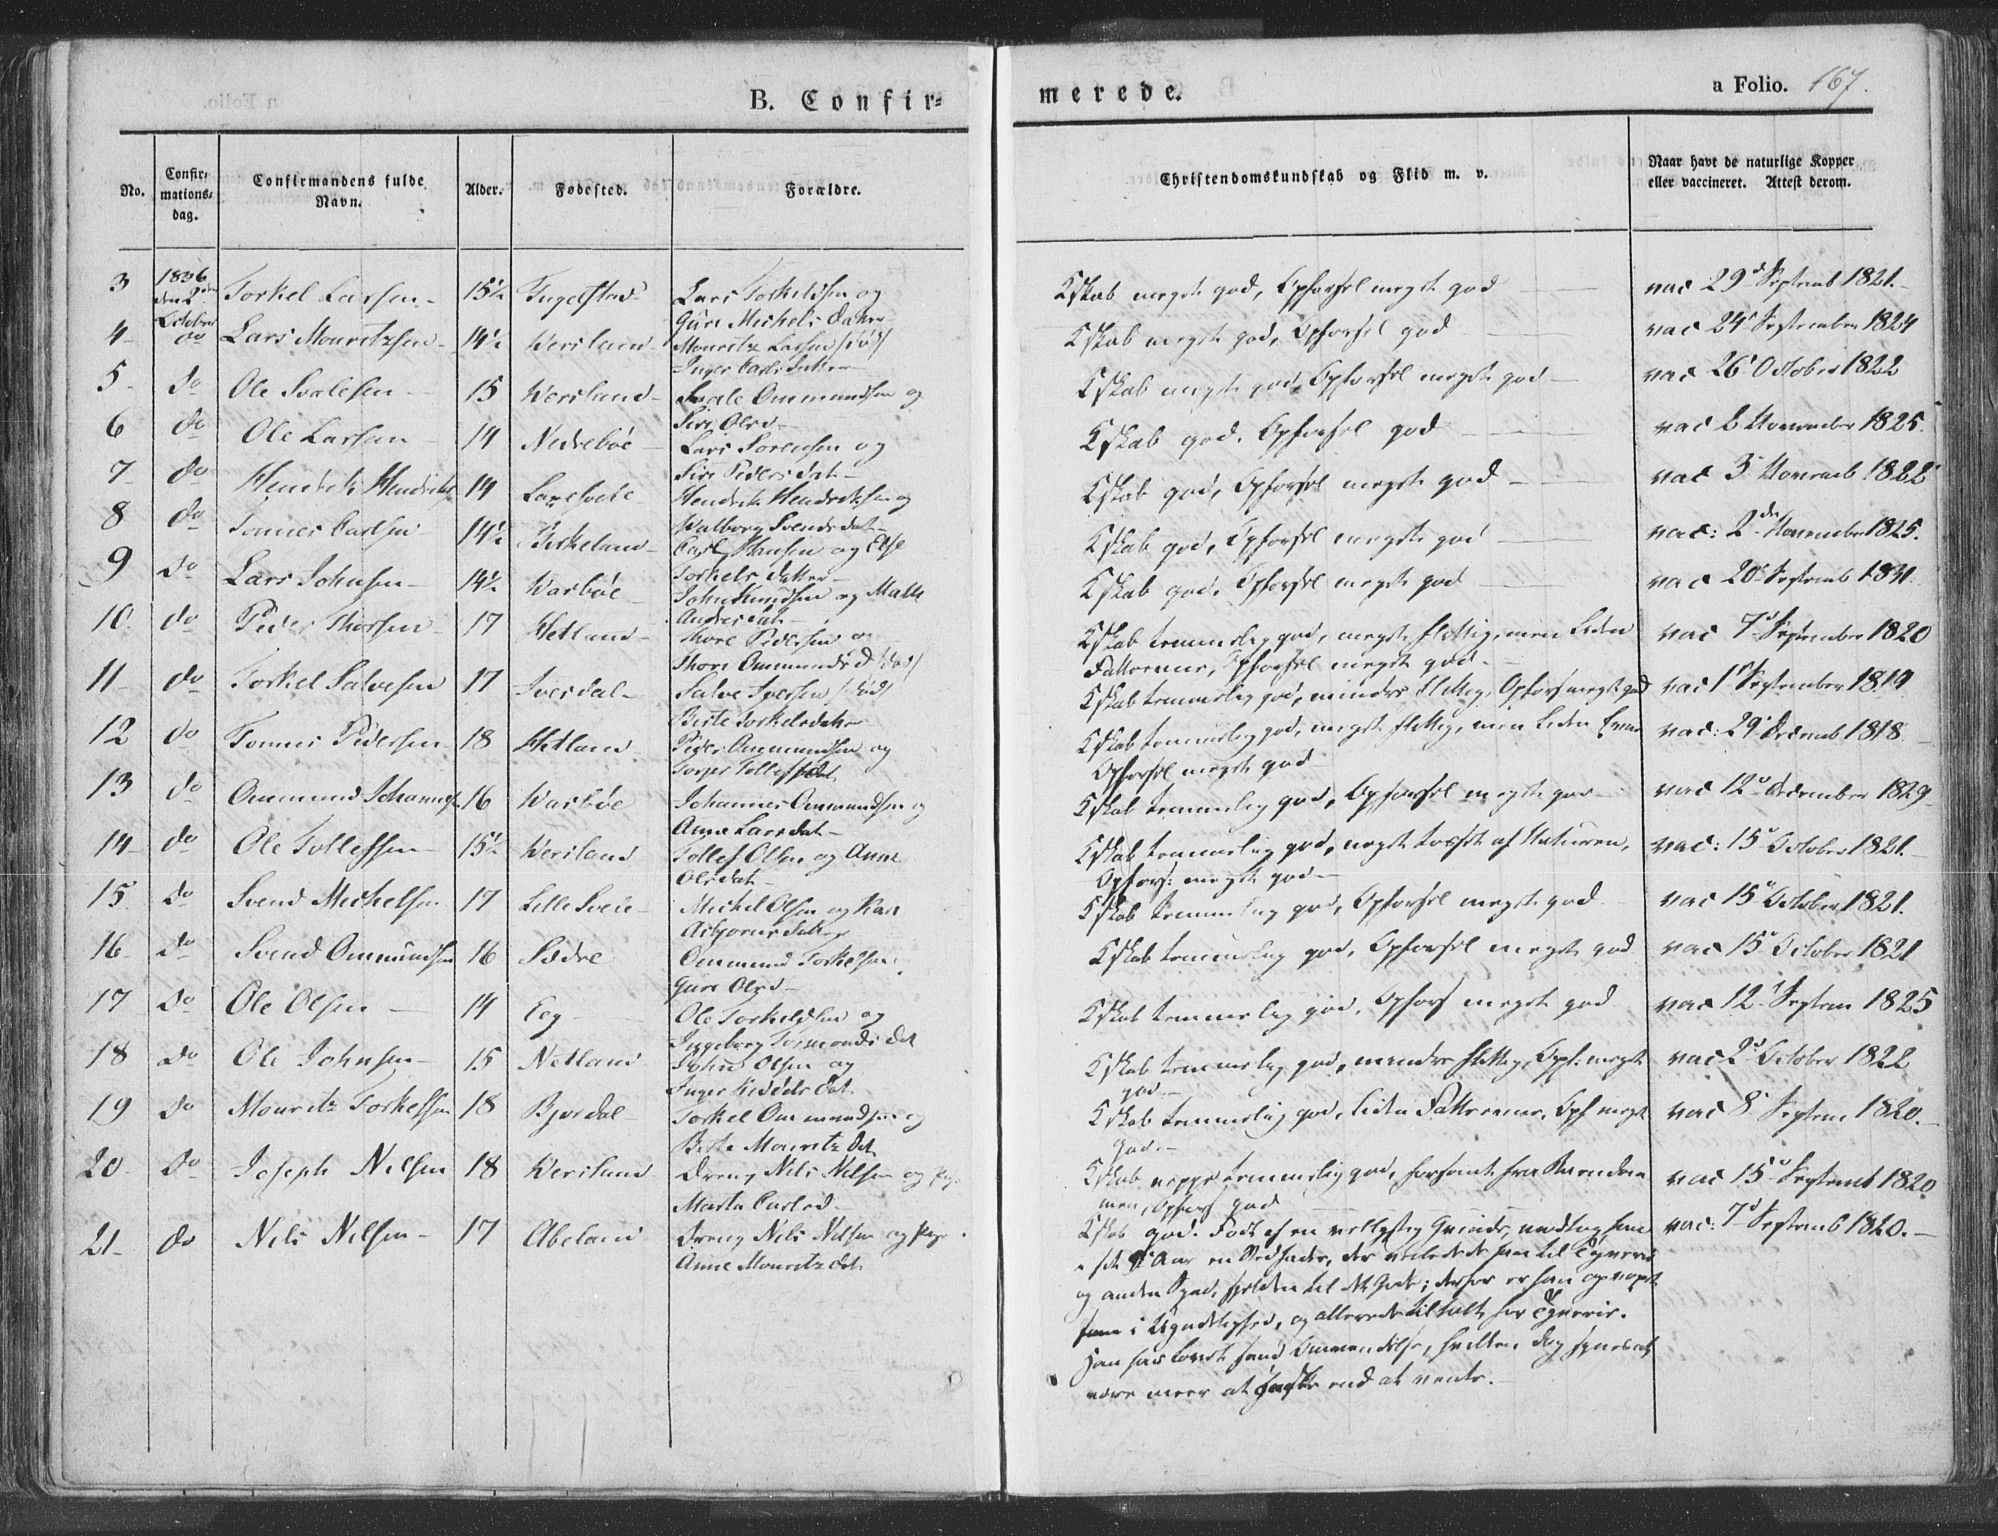 B. Confir=
merede.
a Folio. 167.
No.
Confir-
mations-
dag.
Confirmandens fulde
Navn.
Alder.
Fødested.
Forældre.
Christendomskundskab og Flid m. v.
Naar havt de naturlige Kopper
eller vaccineret. Attest derom.
3 1836 den 2den October Torkel Larsen 15½ Lars Torkeldsen og
Guri Michels Datter
Kskab meget god, Opførsel meget god vac 29d Septemb 1821.
4 do Lars Mouritzsen 14½ Wersland Mouritz Larsen /død/
Inger Carls Datter
Kskab meget god, Opførsel god vac 24d September 1824
5 do Ole Svalesen 15 Wersland Svale Ommundsen og
Siri Olsd
Kskab meget god, Opførsel meget god vac 26d October 1822
6 do Ole Larsen 14 Nedrebøe Lars Sørensen og
Siri Peders dat
Kskab god, Opførsel god vac November 1825.
7 do Hendrik Hendriksen 14 Hendrik Hendriksen og
Walborg Svends dat
Kskab god, Opførsel meget god vac 3 Novemb 1822
8 do Tønnes Carlsen 14½ Birkeland Carl Hansen og Else
Torkels datter
Kskab god, Opførsel meget god vac: 2den November 1825.
9 do Lars Johnsen 14½ Warbøe John Knudsen og Malle
Andersdat
Kskab god, Opførsel meget god vac 20d Septemb
10 do Peder Thorsen 17 Hetland Thore Pedersen og
Thore Ommunds d /død/
Kskab temmelig god, meget flittig, men liden
Fatteevne, Opførsel meget god.
vac 7d September 1820
11 do Torkel Salvesen 17 Iversdal Salve Iversen /død/
Berte Torkelsdatter
Kskab temmelig god, mindre flittig, Opførs meget god vac 1d September 1819
12 do Tønnes Pedersen 18 Hetland Peder Ommundsen og
Tollefsdat
Kskab temmelig god, meget flittig, men liden Evne
Opførsel meget god
vac: 29d Decemb 1818.
13 do Ommund Johannesen 16 Warbøe Johannes Ommundsen og
Anne Larsdat
Kskab temmelig god, Opførsel meget god vac 12d December 1829
14 do Ole Tollefsen 15½ Wersland Tollef Olsen og Anne
Olsdat
Kskab temmelig god, noget tosset af Naturen,
Opførs: meget god
vac: 15d October 1821.
15 do Svend Michelsen 17 Lille Svele Michel Olsen og Kari
Asbjørnsdatter
Kskab temmelig god, Opførsel meget god vac 15d October 1821.
16 do Svend Ommundsen 16 Sædre Ommund Torkelsen
Guri Olsd
Kskab temmelig god, Opførsel meget god vac 15d October 1821
17 do Ole Olsen 14 Eeg Ole Torkeldsen og
Ingeborg Tormonds dat
Kskab temmelig god, Opførs meget god vac 12d Septem 1825
18 do Ole Johnsen 15 Netland John Olsen og
Inger
Kskab temmelig god, mindre flittig, Opf. meget
god
vac 2d October 1822
19 do Mouritz Torkelsen 18 Bjordal Torkel Ommundsen og
Berte Mouritz dat
Kskab temmelig god, liden Fatteevne, Opf meget
god.
vac 8d Septem 1820.
20 do Joseph Nilsen 18 Wersland Dreng Nils Nilsen og Pige
Marta Carlsd
Kskab neppe temmelig god, forsømt fra Barndom-
men, Opførs god
vac 15d Septemb 1820
21 do Nils Nilsen 17 Abeland Dreng Nils Nilsen og Pige
Anne Mouritzdat
Kskab god. Født af en Qvinde, modtog han
Aar en Stedfader, der veiledede ham til Tyverie
og anden Synd, sjelden til det gode; derfor er han opvoxet
i Ugudelighed, og allerede tiltalt for Tyverie.
Han har lovet sand Omvendelse, hvilken dog synes at
være meer at ønske end at vente.
vac: 7d Septemb 1820.